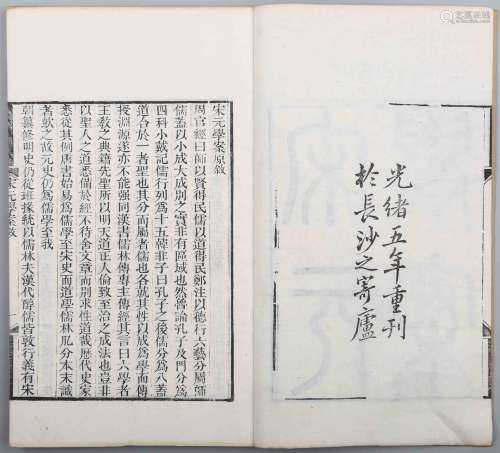 光緒五年重刊
於長沙之寄廬
宋元學案原敘
周官經曰師以賢得民儒以道得民鄭注以德行六藝分屬師
儒蓋以小成大成別之實非有區域也然魯論孔子及門分為
四科小戴記儒行列為十五韓非子曰孔子之後儒分為八蓋
道合於一者聖也其分而屬者儒也各就其性以成為學而傳
授淵源遂亦不能強同漢書儒林傳專主傳經其言曰六學者
王教之典籍先聖所以明天道正人倫致至治之成法也豈非
以聖人之道悉備於經不待舍文章而別求性道哉歷代史家
悉從其例唐書始易為儒學至宋史而道學儒林瓜分本末識
者歎之故元史仍為儒學至我
朝纂修明史仍從班採統以儒林夫漢代羣儒皆敦行義有宋
宋元學案敘